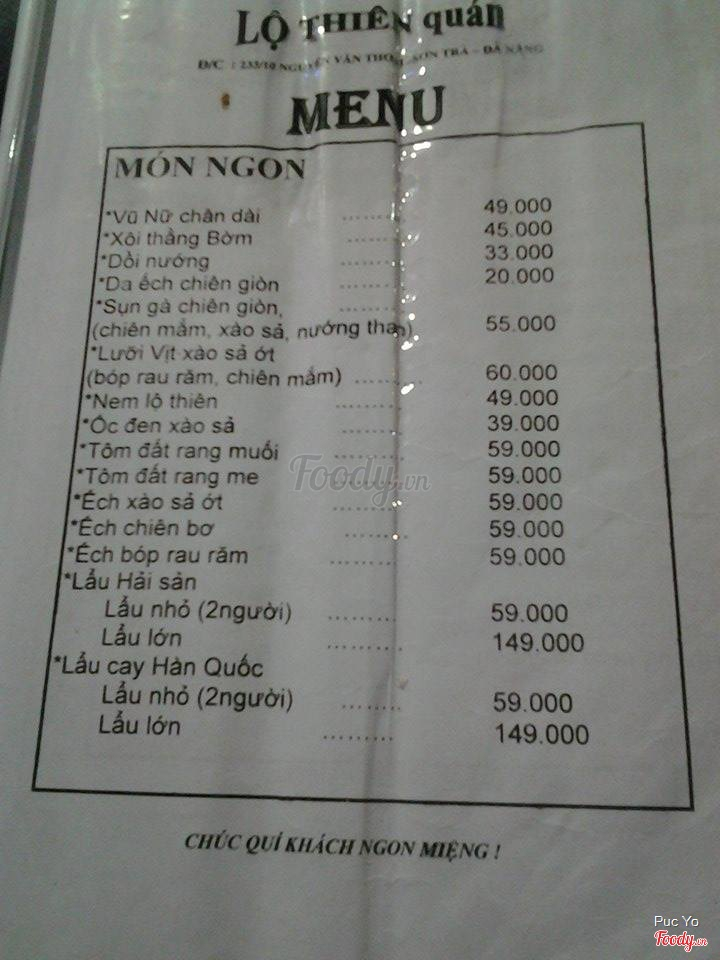 LỘ THIÊN quán
Đ/C : 233/10 NGUYỄN VĂN THOẠI, SƠN TRÀ - ĐÀ NẴNG
MENU
MÓN NGON
*Vũ Nữ chân dài ......... 49.000
*Xôi thằng Bờm ......... 45.000
*Dồi nướng ......... 33.000
*Da ếch chiên giòn ......... 20.000
*Sụn gà chiên giòn, .........
(chiên mắm, xào sả, nướng than) 55.000
*Lưỡi Vịt xào sả ớt
(bóp rau răm, chiên mắm) ......... 60.000
*Nem lộ thiên ......... 49.000
*Ốc đen xào sả ......... 39.000
*Tôm đất rang muối ......... 59.000
*Tôm đất rang me ......... 59.000
*Ếch xào sả ớt ......... 59.000
*Ếch chiên bơ ......... 59.000
*Ếch bóp rau răm ......... 59.000
*Lẩu Hải sản
Lẩu nhỏ (2người) ......... 59.000
Lẩu lớn ......... 149.000
*Lẩu cay Hàn Quốc
Lẩu nhỏ (2người) ......... 59.000
Lẩu lớn ......... 149.000
CHÚC QUÍ KHÁCH NGON MIỆNG !
Foody.vn
Puc Yo
Foody.vn